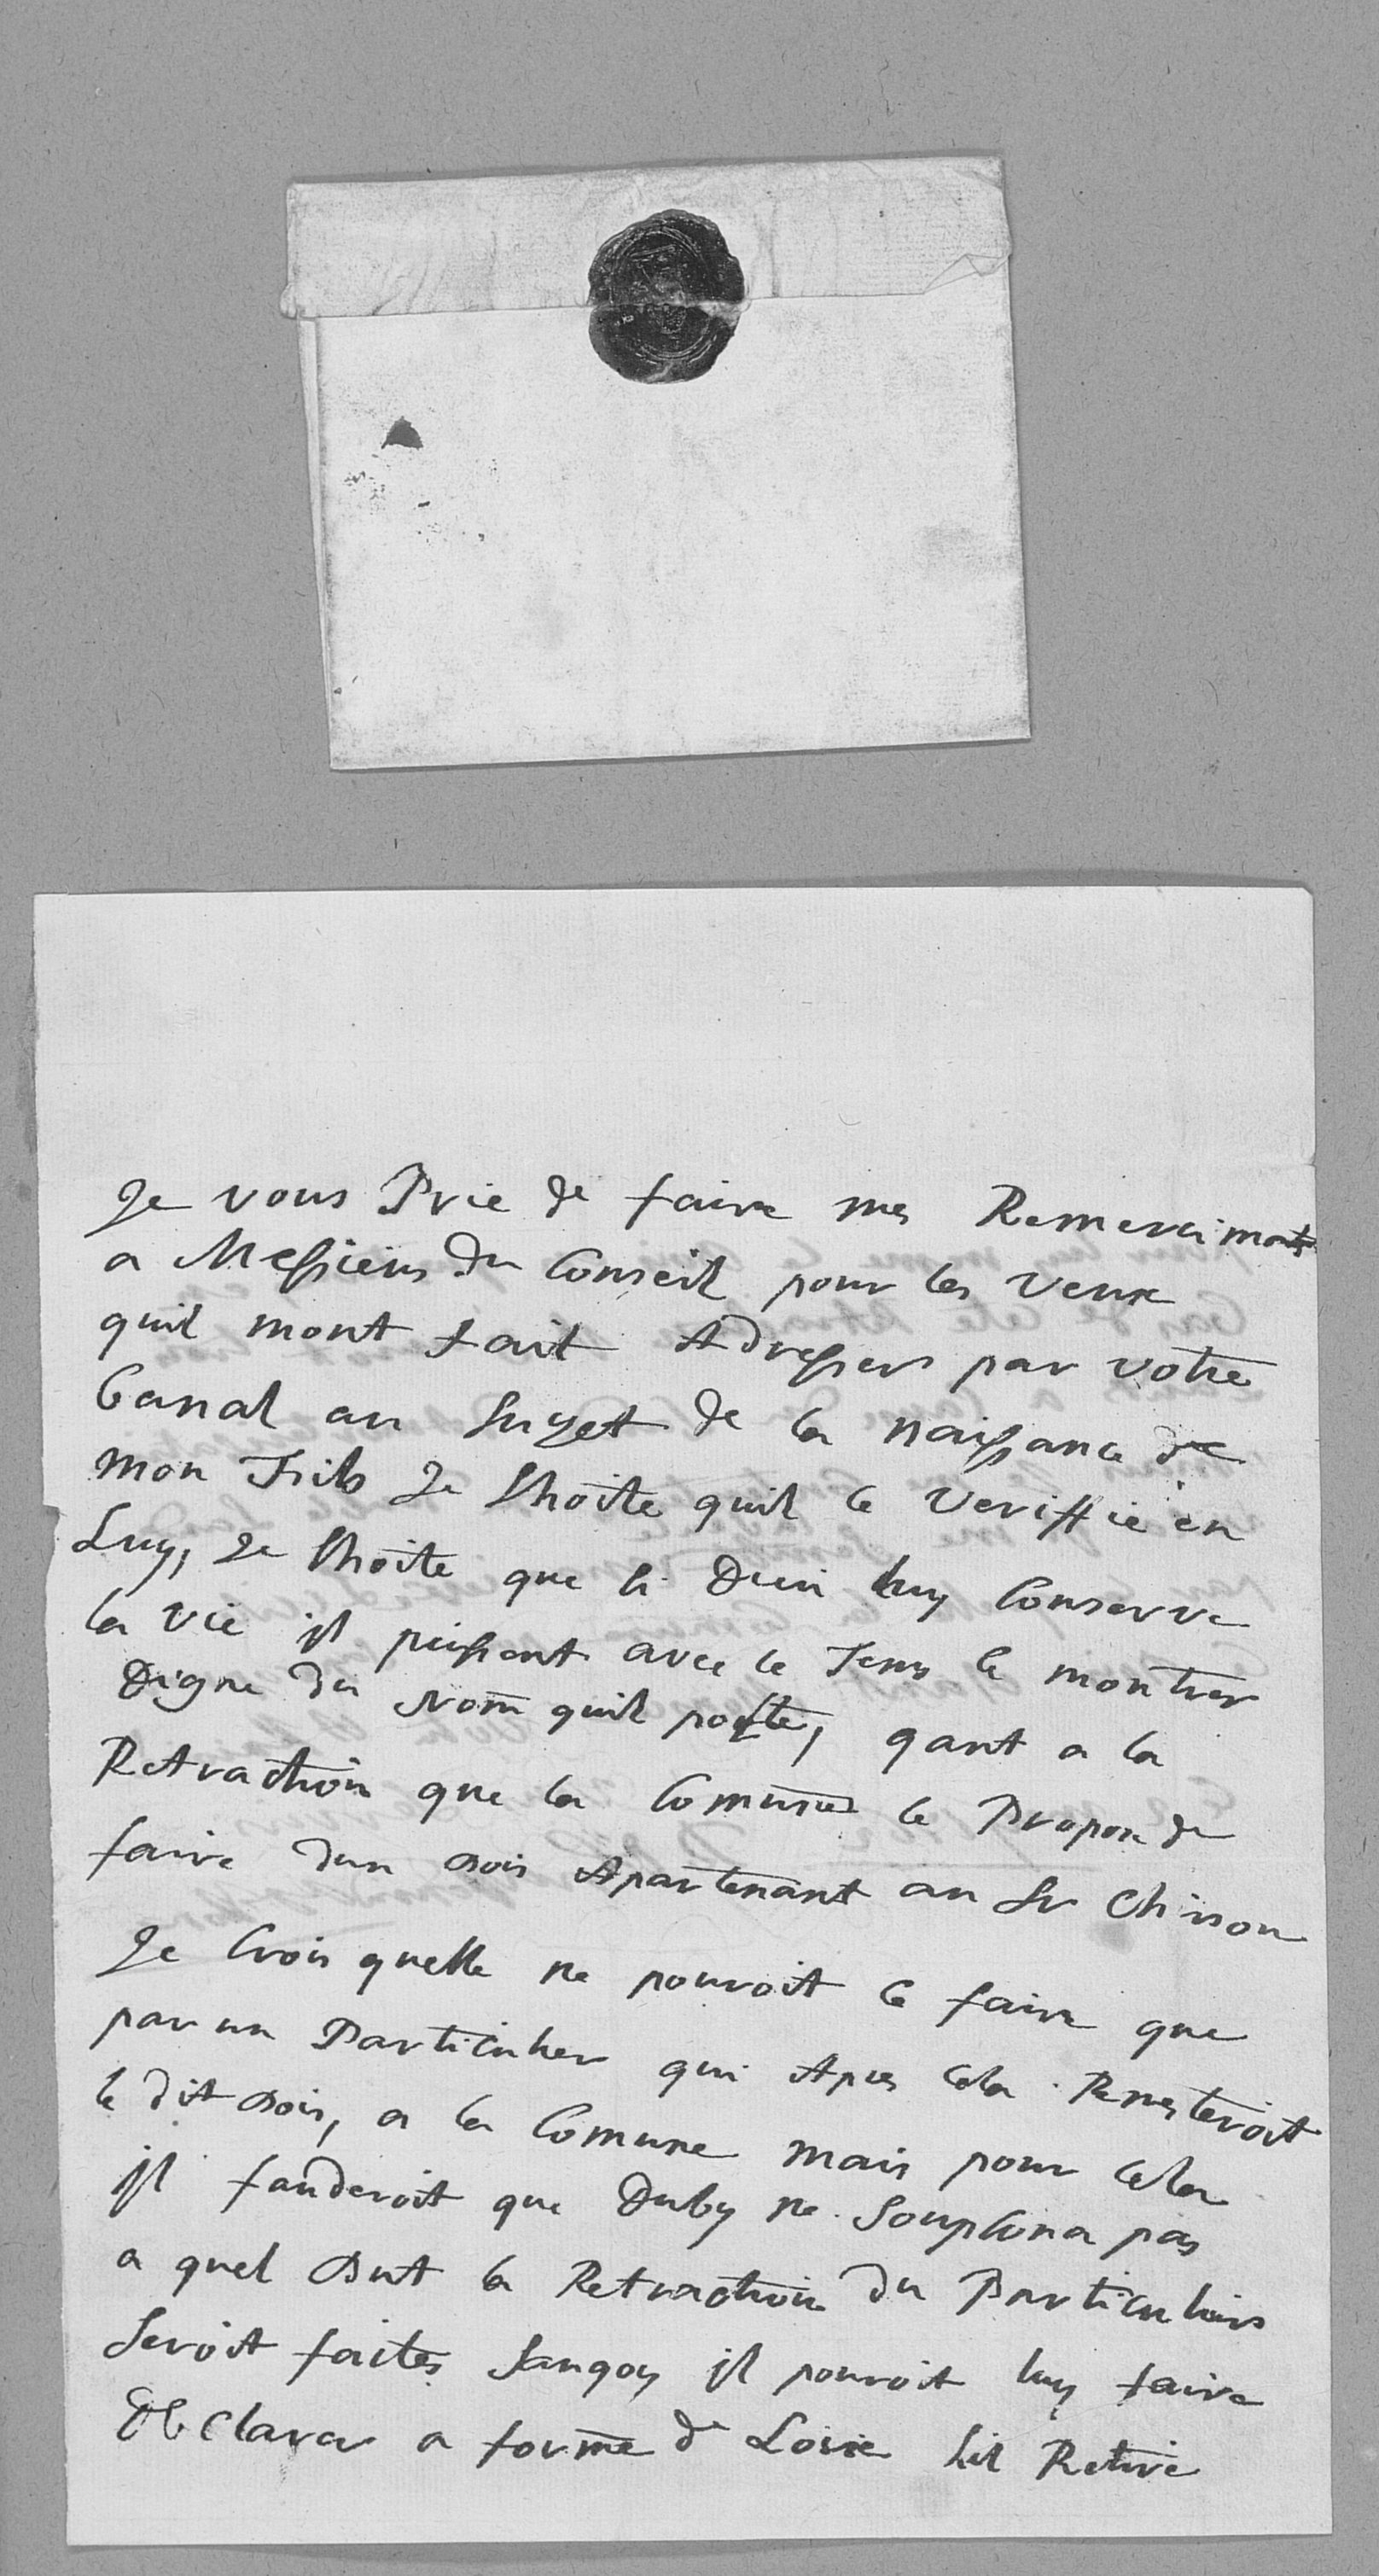 Je vous Prie de faire mes Remercimonts
a Messieurs du Conseil pour les veux
quil mont fait Adresser par votre
Canal au Sujet de la naissance de
mon Fils Je Shoite quil ce veriffie en
Luy, Je Shoite que si Dieu luy Conserve
la vie il puissent avec le Tems ce montrer
Digne du Nom quil porte, qant a la
Retraction que la Comune ce Propose de
faire dun Bois Apartenant au Sr Chinon
Je Crois quelle ne pouroit ce faire que
par un Particulier qui Apres cela Remesteroit
le dit Bois, a la Comune mais pour cela
il fauderoit que Duby ne Soupcona pas
a quel But la Retraction du Particuliers
Seroit faites Sanqoy il pouroit luy faire
Declarer a forme de Loix Sil Retire